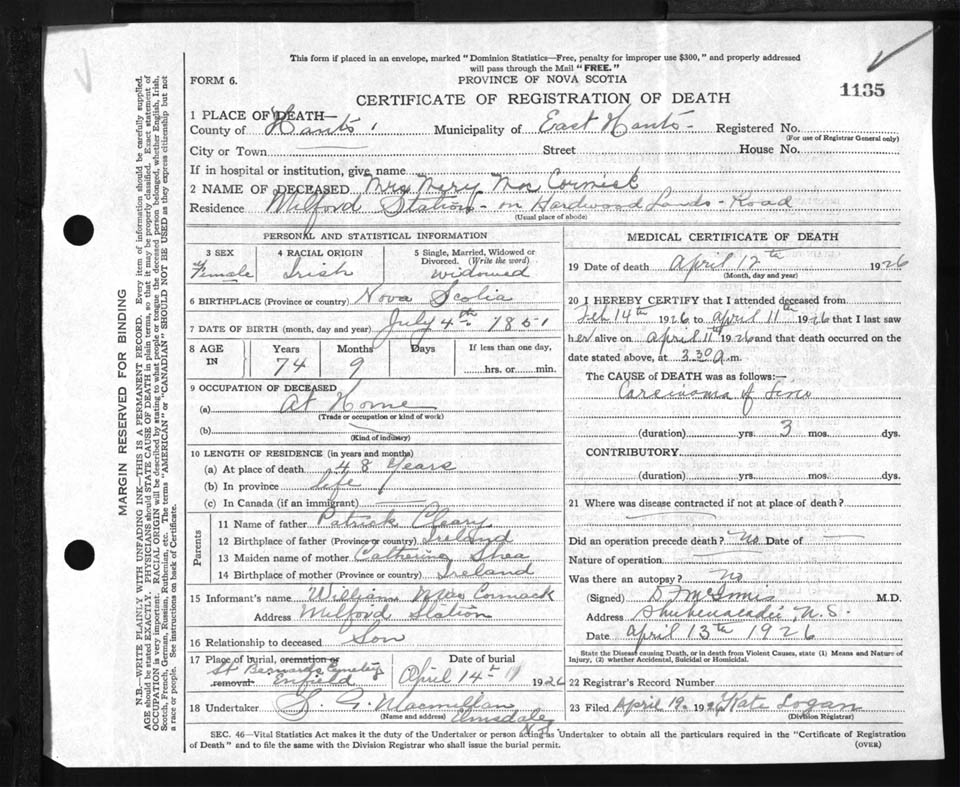 This form if placed in an envelope, marked "Dominion Statistics—Free, penalty for improper use $300," and properly addressed
will pass through the Mail "FREE."
FORM 6.
PROVINCE OF NOVA SCOTIA
1135
CERTIFICATE OF REGISTRATION OF DEATH
1 PLACE OF DEATH—
County of Hants Municipality of East Hants- Registered No.
(For use of Registrar General only)
City or Town Street House No.
If in hospital or institution, give name
2 NAME OF DECEASED Mrs Mary Mac Cormick
Residence Milford Station - on Hardwood Lands - Road
(Usual place of abode)
PERSONAL AND STATISTICAL INFORMATION
3 SEX 4 RACIAL ORIGIN 5 Single, Married, Widowed or
Divorced. (Write the word)
Female Irish widowed
6 BIRTHPLACE (Province or country) Nova Scotia
7 DATE OF BIRTH (month, day and year) July 4th 1851
8 AGE IN Years Months Days If less than one day,
74 9 hrs. or min.
9 OCCUPATION OF DECEASED
(a) At Home
(Trade or occupation or kind of work)
(b)
(Kind of industry)
10 LENGTH OF RESIDENCE (in years and months)
(a) At place of death 48 Years
(b) In province life
(c) In Canada (if an immigrant)
Parents
11 Name of father Patrick Cleary
12 Birthplace of father (Province or country) Ireland
13 Maiden name of mother Catherine Shea
14 Birthplace of mother (Province or country) Ireland
15 Informant's name William MacCormack
Address Milford Station
16 Relationship to deceased Son
17 Place of burial, cremation or Date of burial
St Bernards Cemetery
removal. Enfield April 14th 1926
18 Undertaker S. G. Macmillan
(Name and address) Elmsdale
N.S.
MEDICAL CERTIFICATE OF DEATH
19 Date of death April 12th 1926
(Month, day and year)
20 I HEREBY CERTIFY that I attended deceased from
Feb 14th 1926 to April 11th 1926 that I last saw
her alive on April 11th 1926 and that death occurred on the
date stated above, at 3.30 a.m.
The CAUSE of DEATH was as follows:—
Carcinoma of
(duration) yrs. 3 mos. dys.
CONTRIBUTORY
(duration) yrs. mos. dys.
21 Where was disease contracted if not at place of death?
Did an operation precede death? No Date of
Nature of operation
Was there an autopsy? no
(Signed) D McInnis M.D.
Address Shubenacadie, N.S.
Date April 13th 1926
State the Disease causing Death, or in death from Violent Causes, state (1) Means and Nature of
Injury, (2) whether Accidental, Suicidal or Homicidal.
22 Registrar's Record Number
23 Filed April 19 1926 Kate Logan
(Division Registrar)
SEC. 46—Vital Statistics Act makes it the duty of the Undertaker or person acting as Undertaker to obtain all the particulars required in the "Certificate of Registration
of Death" and to file the same with the Division Registrar who shall issue the burial permit.
(OVER)
MARGIN RESERVED FOR BINDING
N.B.—WRITE PLAINLY WITH UNFADING INK—THIS IS A PERMANENT RECORD. Every item of information should be carefully supplied.
AGE should be stated EXACTLY. PHYSICIANS should STATE CAUSE OF DEATH in plain terms, so that it may be properly classified. Exact statement of
OCCUPATION is very important. RACIAL ORIGIN will be described by stating to what people or tongue the deceased person belonged, whether English, Irish,
Scotch, French, German, Russian, Ruthenian, etc. The terms "AMERICAN" or "CANADIAN" SHOULD NOT BE USED as they express citizenship but not
a race or people. See instructions on back of Certificate.